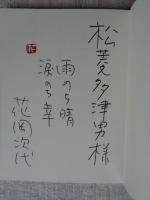 松菱多津男様
雨のち晴
涙のち幸
花岡次代